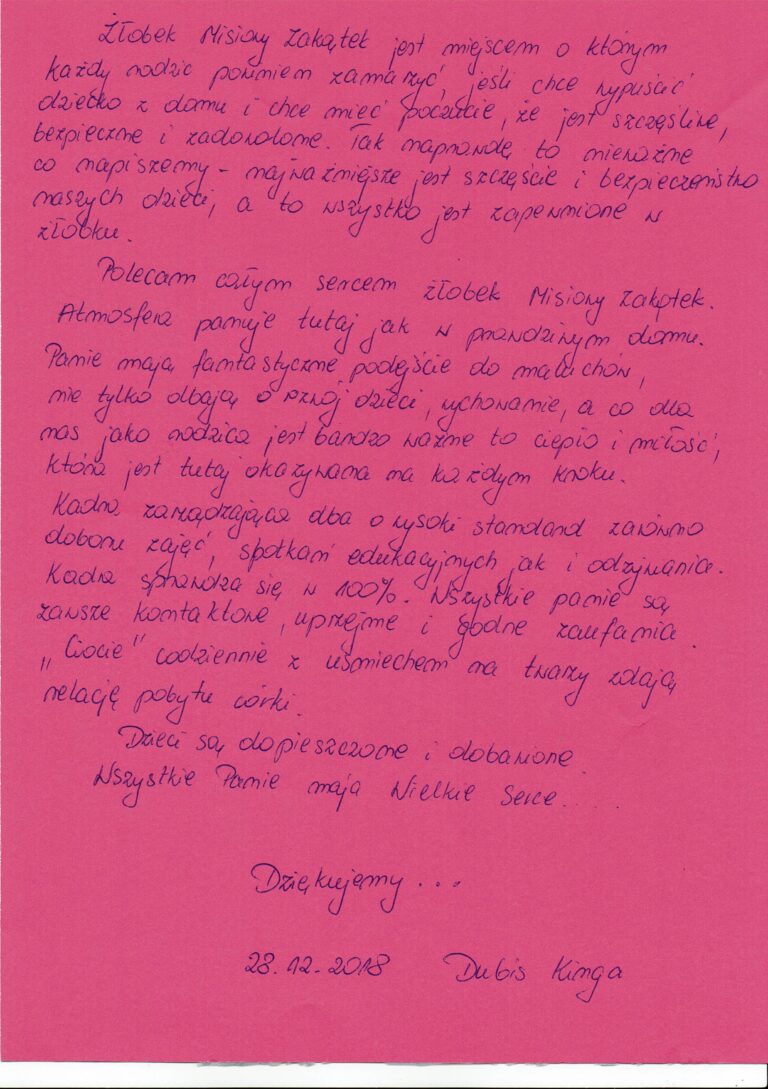 Żłobek Misiowy Zakątek jest miejscem o którym
każdy rodzic powinien zamarzyć, jeśli chce wypuścić
dziecko z domu i chce mieć poczucie, że jest szczęśliwe,
bezpieczne i zadowolone. Tak naprawdę to nieważne
co napiszemy - najważniejsze jest szczęście i bezpieczeństwo
naszych dzieci, a to wszystko jest zapewnione w
żłobku.
Polecam całym sercem żłobek Misiowy Zakątek.
Atmosfera panuje tutaj jak w prawdziwym domu.
Panie mają fantastyczne podejście do maluchów,
nie tylko dbają o rozwój dzieci, wychowanie, a co dla
nas jako rodzica jest bardzo ważne to ciepło i miłość,
która jest tutaj okazywana na każdym kroku.
Kadra zarządzająca dba o wysoki standard zarówno
doboru zajęć, spotkań edukacyjnych jak i odżywiania.
Kadra sprawdza się w 100%. Wszystkie panie są
zawsze kontaktowe, uprzejme i godne zaufania.
„Ciocie" codziennie z uśmiechem na twarzy zdają
relację pobytu córki.
Dzieci są dopieszczone i dobawione.
Wszystkie Panie maja Wielkie Serce.....
Dziękujemy...
28.12.2018 Dubis Kinga